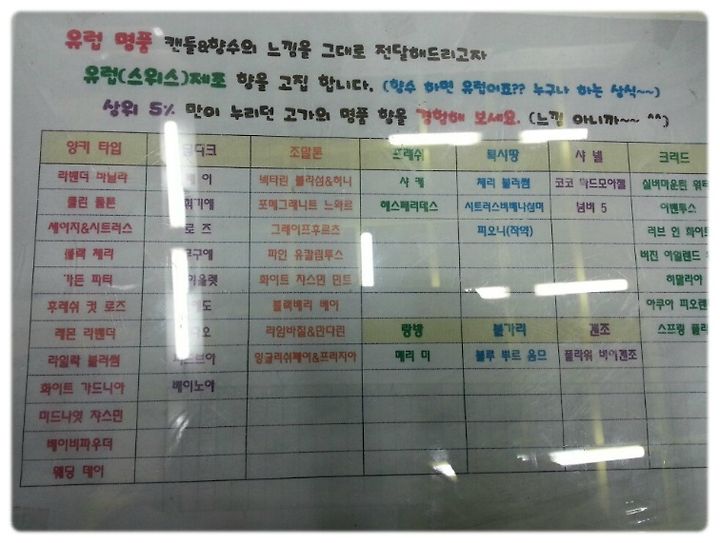 유럽 명품 캔들&향수의 느낌을 그대로 전달해드리고자
유럽(스위스)제조 향을 고집 합니다. (향수 하면 유럽이죠?? 누구나 하는 상식~~)
상위 5% 만이 누리던 고가의 명품 향을 경험해 보세요. (느낌 아니까~~ ^^)
양키 타입 조말론 프레쉬 록시땅 샤넬 크리드
라벤더 바닐라 넥타린 블라썸&허니 사케 체리 블러썸 코코 마드모아젤 실버마운틴 워터
클린 코튼 포메그래니트 느와르 헤스페리데스 시트러스버베나썸머 넘버 5 어벤투스
세이지&시트러스 로즈 그레이프후르츠 피오니(작약) 러브 인 화이트
블랙 체리 파인 유칼립투스 버진 아일랜드
가든 파티 화이트 쟈스민 민트 히말라야
후레쉬 컷 로즈 블랙베리 베이 아쿠아 피오렌
레몬 라벤더 라임바질&만다린 랑방 불가리 겐조 스프링 플라
라일락 블러썸 잉글리쉬페어&프리지아 메리 미 블루 뿌르 옴므 플라워 바이겐조
화이트 가드니아 베이노아
미드나잇 쟈스민
베이비파우더
웨딩 데이